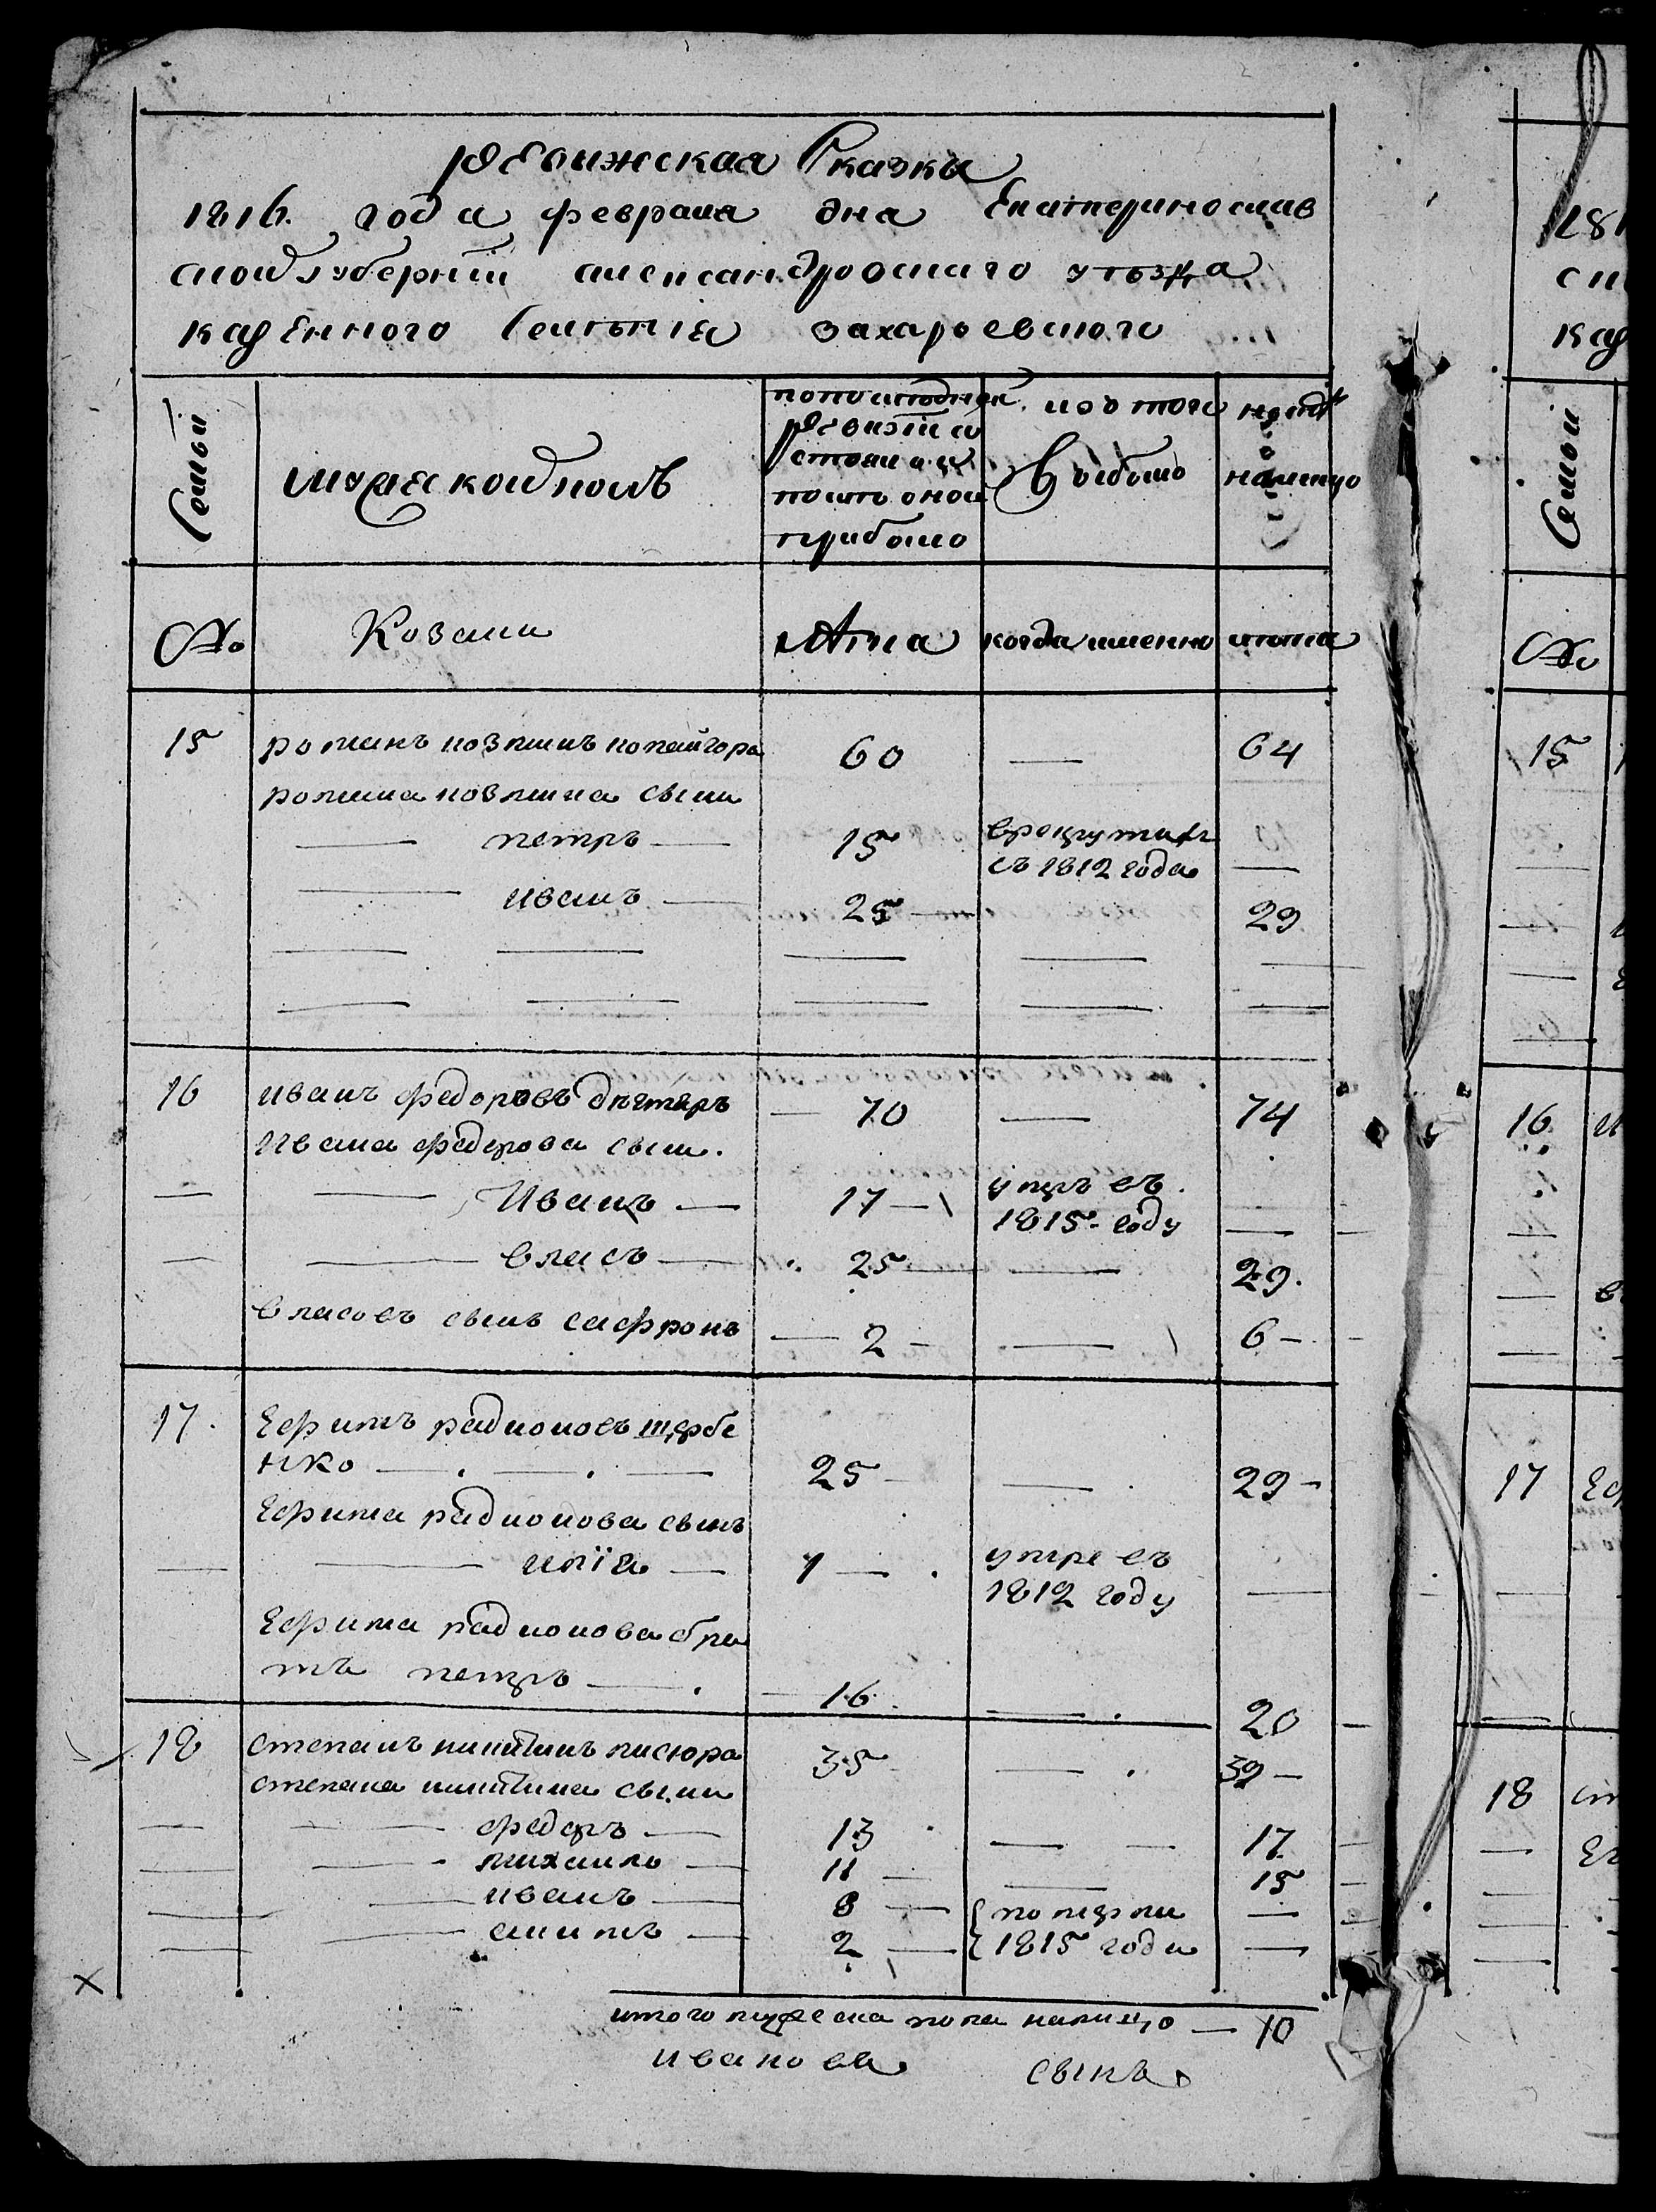 ревижская Сказка
1816. года февраля дня Екатеринослав
ской губернїи александровскаго уъзда
казенного Селънїя захарьевского
Семьи
мужеской полъ
попоследней
ревизїи
состояло и
послъ оной
прибыло
изъ того
Выбыло
нынѣ
налицо
№
Козаки
лѣта
когда именно
лѣта
15
романъ козминъ копайгора
60
—
64
романа козмина сыни
— петръ —
15
врекрутахъ
съ 1812 года
—
— иванъ —
25 —
29
16
иванъ федоровъ дегтяръ
— 70
—
74
Ивана федорова сыни.
— Иванъ —
17 —
умръ въ
1815. году
—
— власъ —
25
—
29.
власовъ сынъ сафронъ
— 2 —
—
6 —
17.
Ефимъ радионовъ щербе
нко — . — . —
25 —
—
29 —
Ефима радионова сынъ
— илїя —
1 — .
умре въ
1812 году
—
Ефима радионова бра
тъ петръ — .
— 16.
— .
20
18
степанъ никитинъ писюра
35
— .
39 —
степана никитина сыни
— федоръ —
13
— —
17
— михаило —
11 —
—
15
— иванъ —
8 —
померли
—
— акимъ —
2 —
1815 года
—
итого мужеска пола налицо — 10
иванова сынъ
181
каз
Семьи
№
15
16
17
Еф
18
ст